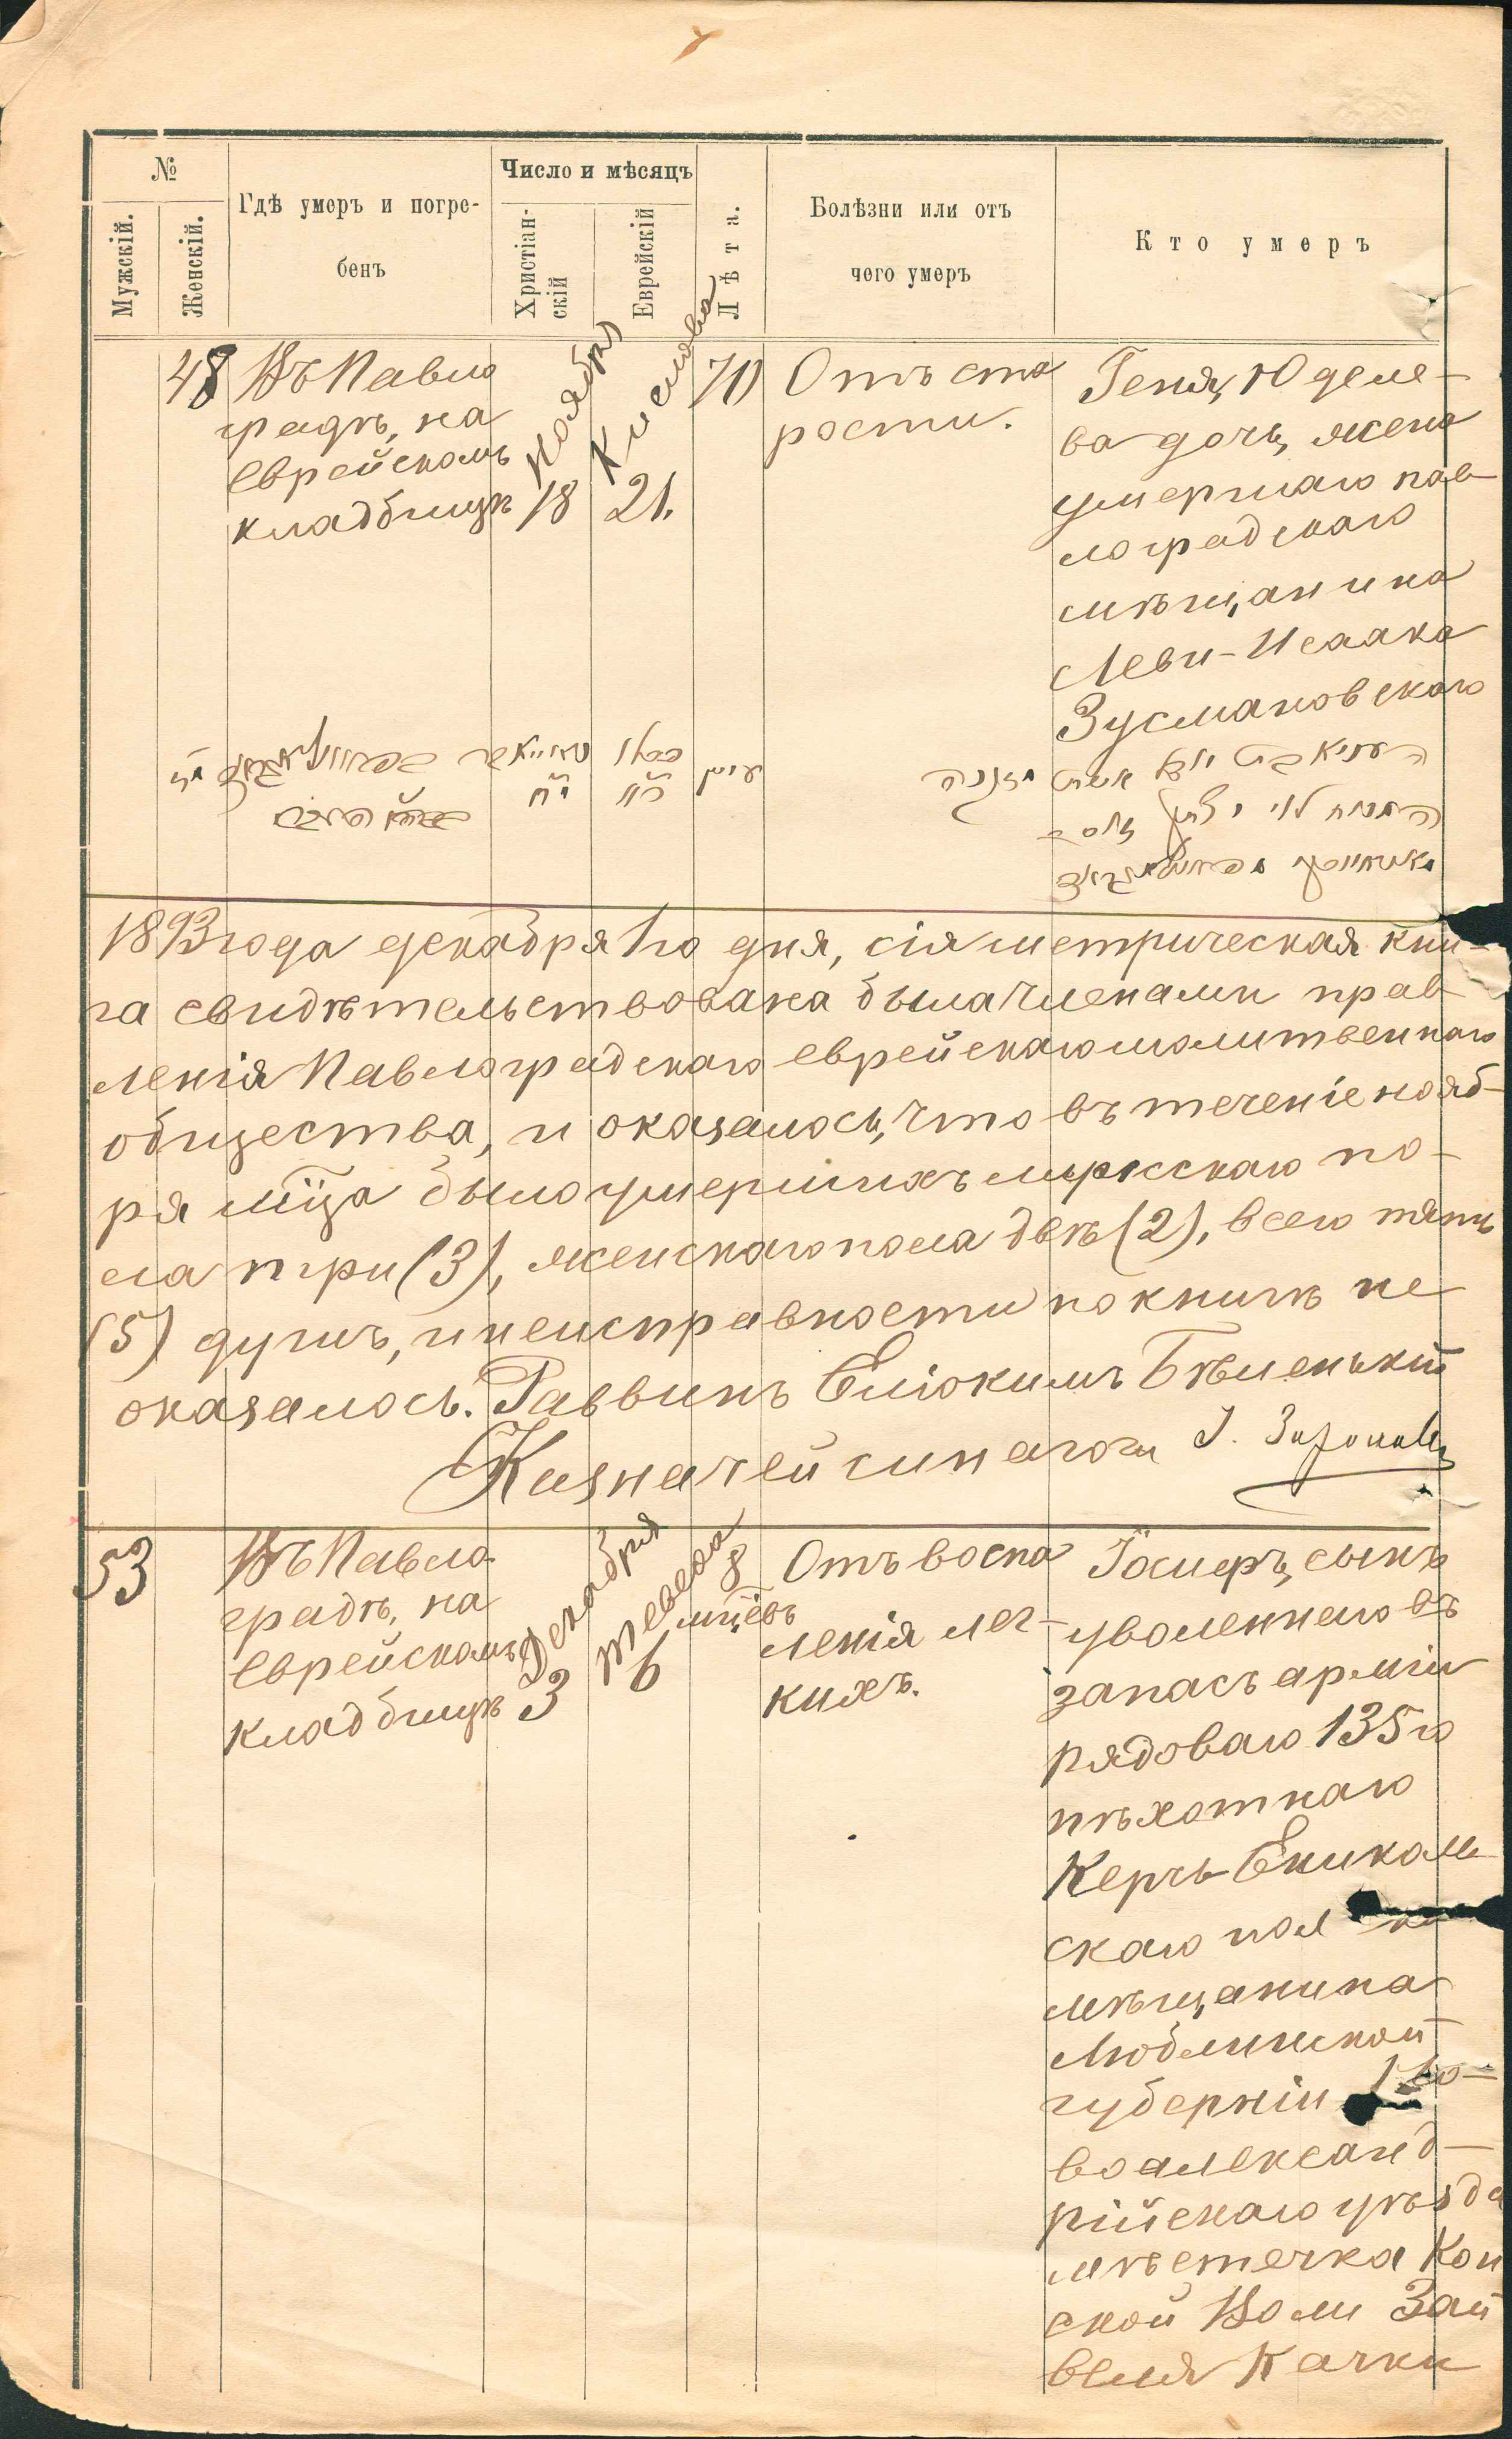 №
Мужскій.
Женскій.
Гдѣ умеръ и погре-
бенъ
Число и мѣсяцъ
Христіан-
скій
Еврейскій
Лѣта.
Болѣзни или отъ
чего умеръ
Кто умеръ
48
Въ Павло
градѣ, на
Еврейскомъ
кладбищѣ
Ноября
18
Кислова
21.
70
Отъ ста
рости.
Геня, Юделе-
ва дочь, жена
умершаго пав-
лоградскаго
мѣщанина
Леви-Исаака
Зусмановскаго
1893 года декабря 1го дня, сія метрическая кни-
га свидѣтельствована была членами прав-
ленія Павлоградскаго еврейскаго молитвеннаго
общества, и оказалось, что въ теченіе нояб-
ря мца было умершихъ мужскаго по-
ла три (3), женскаго пола двѣ (2), всего пять
(5) душъ, и неисправности по книгѣ не
оказалось. Раввинъ Еліокимъ Бѣленькій
Казначей синагоги І.
53
Въ Павло
градѣ, на
Еврейскомъ
кладбищѣ
Декабря
3
Тевеса
6
8
мцевъ
Отъ воспа
ленія лег-
кихъ.
Іосиеръ, сынъ
уволеннаго въ
запасъ арміи
рядоваго 135го
пѣхотнаго
Керчь-Еникаль
скаго пол
мѣщанина
Люблинской
губерніи Но-
воалександ-
рійскаго уѣзда
мѣстечка Кон
ской Воли Зай
веля Качки